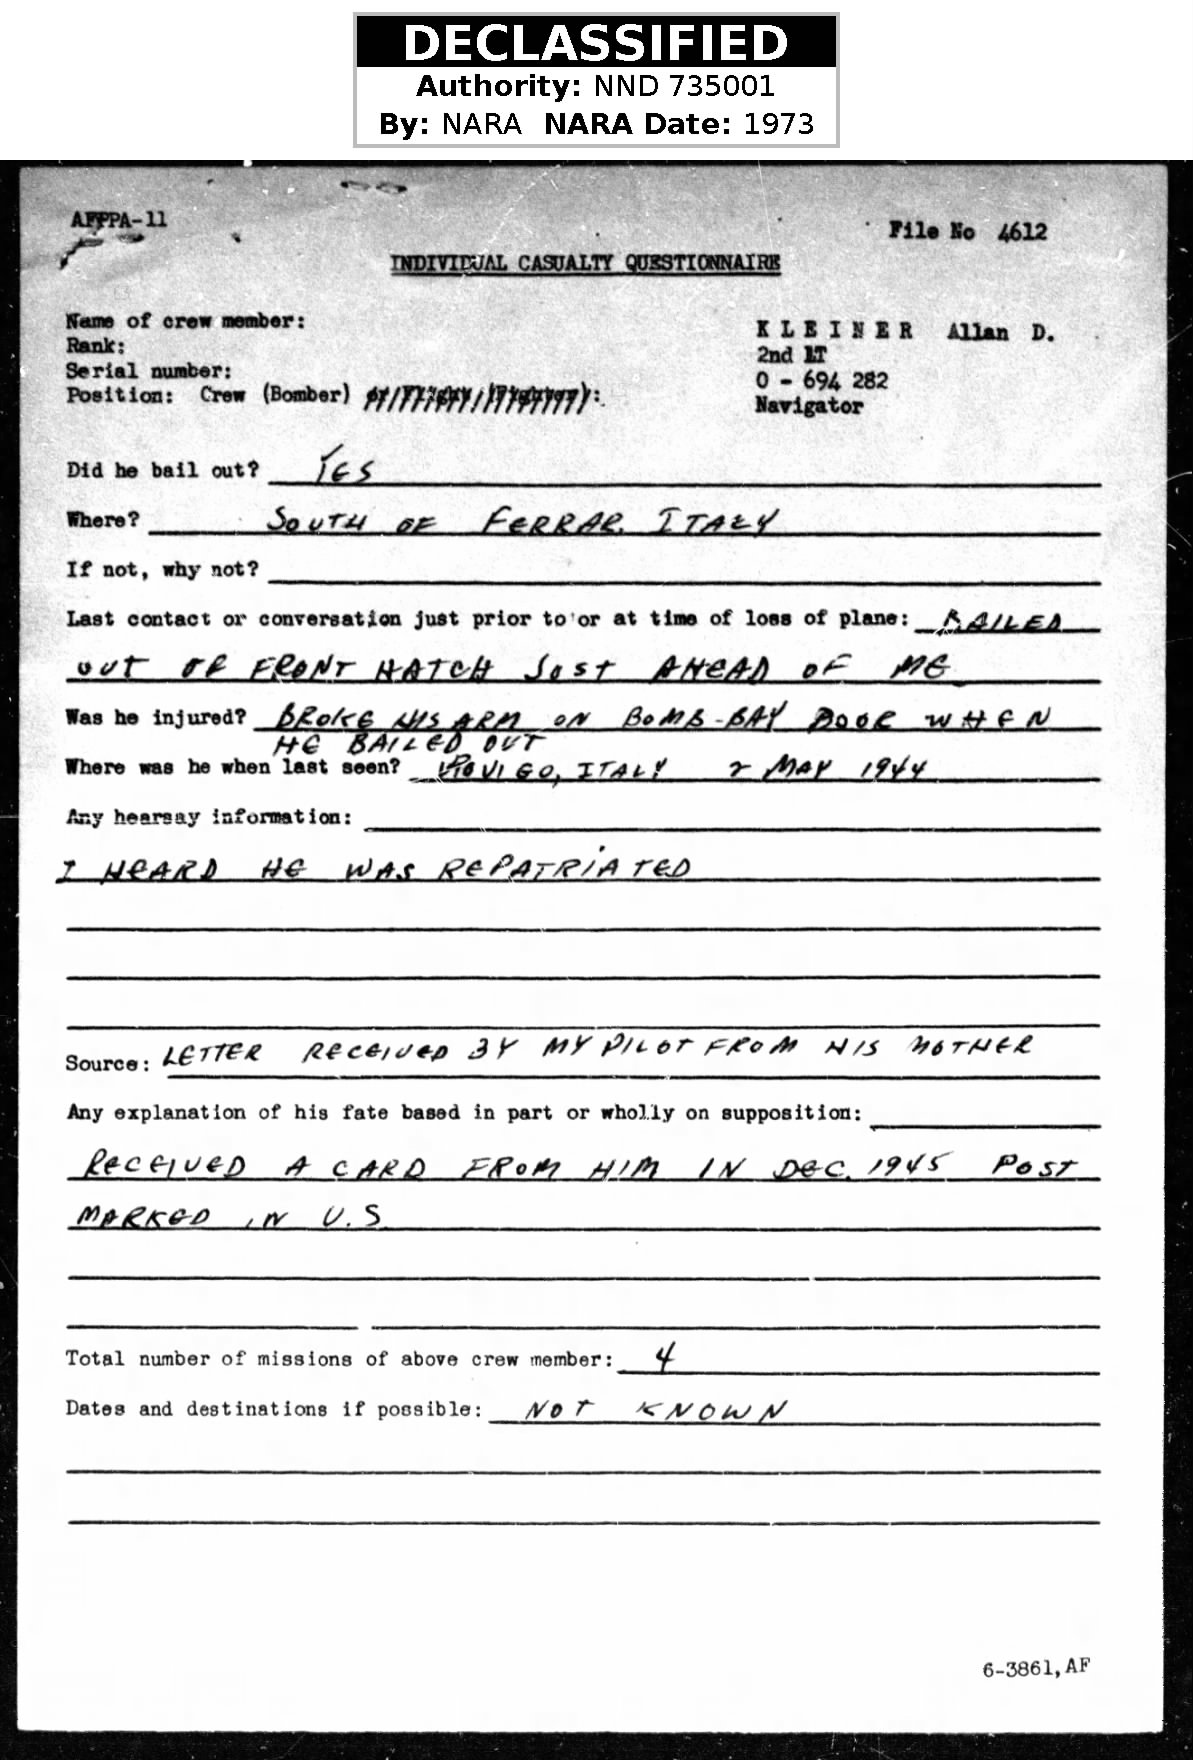 DECLASSIFIED
Authority: NND 735001
By: NARA NARA Date: 1973
AFPPA-11
File No 4612
INDIVIDUAL CASUALTY QUESTIONNAIRE
Name of crew member: K L E I N E R Allan D.
Rank: 2nd LT
Serial number: O - 694 282
Position: Crew (Bomber) or/Flight/(Fighter): Navigator
Did he bail out? YES
Where? SOUTH OF FERRAR. ITALY
If not, why not?
Last contact or conversation just prior to or at time of loss of plane: BAILED
OUT OF FRONT HATCH JUST AHEAD OF ME
Was he injured? BROKE HIS ARM ON BOMB-BAY DOOR WHEN
HE BAILED OUT
Where was he when last seen? ROVIGO, ITALY 2 MAY 1944
Any hearsay information:
I HEARD HE WAS REPATRIATED
Source: LETTER RECEIVED BY MY PILOT FROM HIS MOTHER
Any explanation of his fate based in part or wholly on supposition:
RECEIVED A CARD FROM HIM IN DEC. 1945 POST
MARKED IN U.S.
Total number of missions of above crew member: 4
Dates and destinations if possible: NOT KNOWN
6-3861, AF